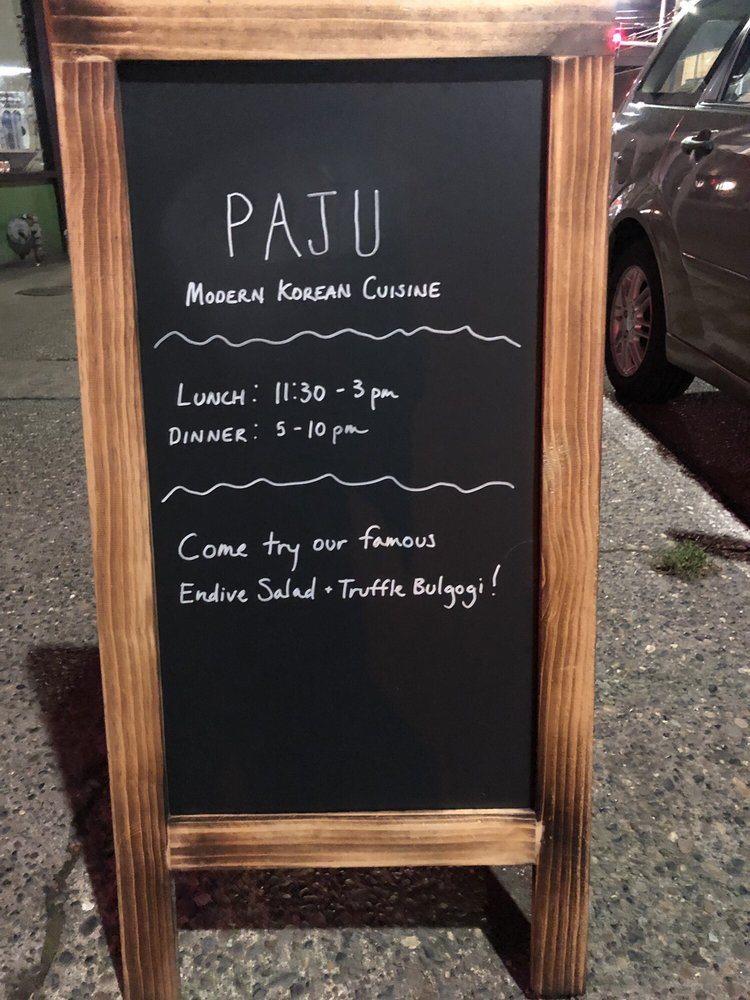 PAJU
MODERN KOREAN CUISINE
LUNCH: 11:30 - 3pm
DINNER: 5 - 10pm
Come try our famous
Endive Salad + Truffle Bulgogi!